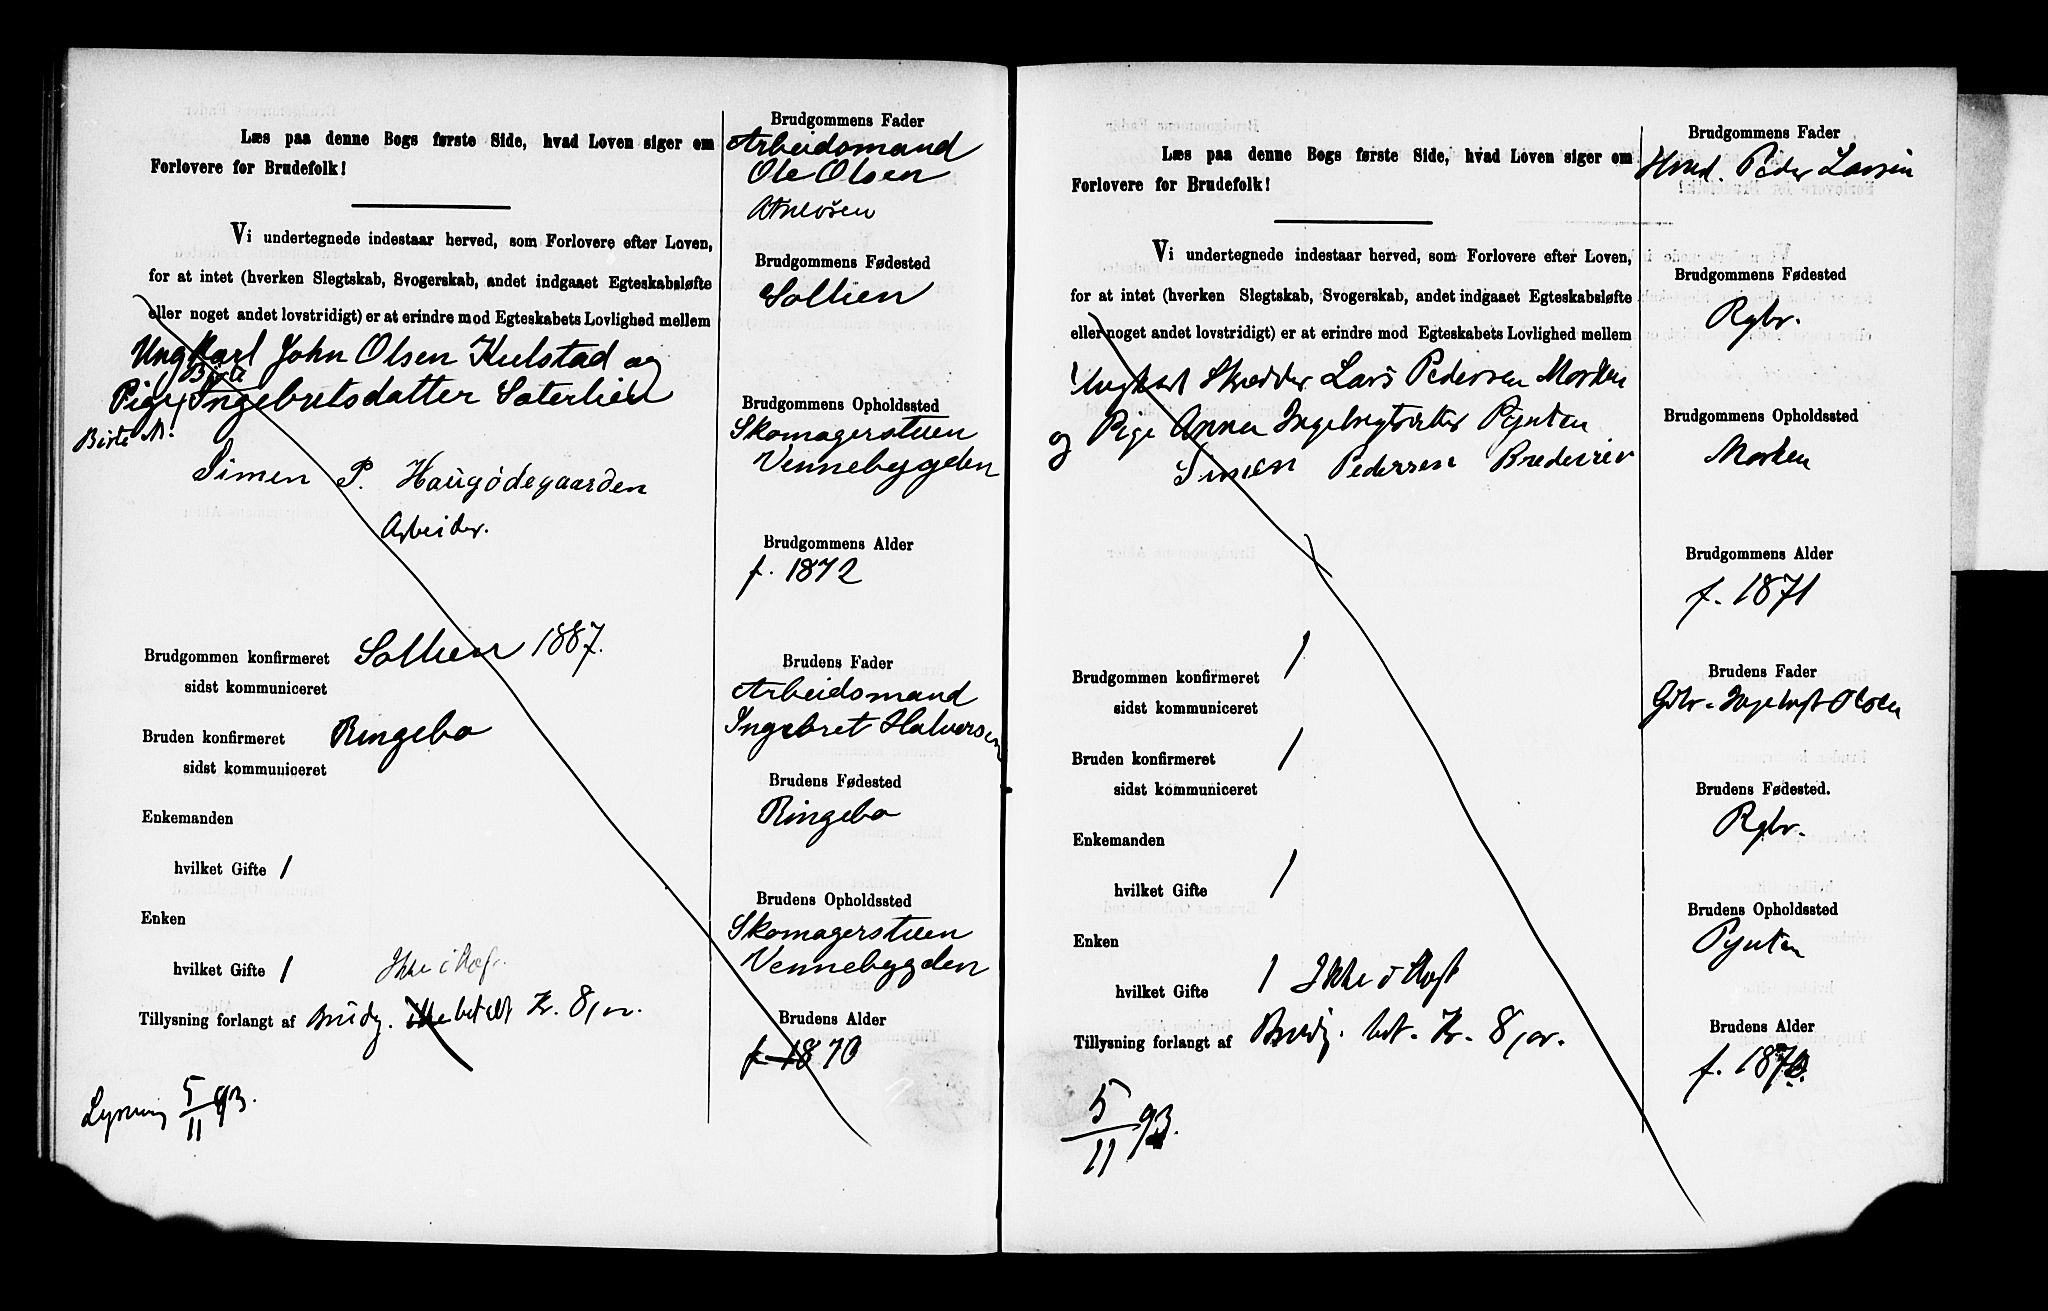 Læs paa denne Bogs første Side, hvad Loven siger om
Forlovere for Brudefolk!
Vi undertegnede indestaar herved, som Forlovere efter Loven,
for at intet (hverken Slegtskab, Svogerskab, andet indgaaet Egteskabsløfte
eller noget andet lovstridigt) er at erindre mod Egteskabets Lovlighed mellem
Ungkarl John Olsen Kulstad og
Birte
Pige Ingebretsdatter Sæterlien
Birte M.
Simen P. Haugødegaarden
Arbeider.
Brudgommen konfirmeret Sollien 1887.
sidst kommuniceret
Bruden konfirmeret Ringebo
sidst kommuniceret
Enkemanden
hvilket Gifte 1
Enken
hvilket Gifte 1 Ikke i Slegt.
Tillysning forlangt af Brudg. ikke betalt Kr. 8,00.
Lysning 5/11 93.
Brudgommens Fader
Arbeidsmand
Ole Olsen
Atneosen
Brudgommens Fødested
Sollien
Brudgommens Opholdssted
Skomagerstuen
Vennebygden
Brudgommens Alder
f. 1872
Brudens Fader
Arbeidsmand
Ingebret Halvorsen
Brudens Fødested
Ringebo
Brudens Opholdssted
Skomagerstuen
Vennebygden
Brudens Alder
f 1870
Læs paa denne Bogs første Side, hvad Loven siger om
Forlovere for Brudefolk!
Vi undertegnede indestaar herved, som Forlovere efter Loven,
for at intet (hverken Slegtskab, Svogerskab, andet indgaaet Egteskabsløfte
eller noget andet lovstridigt) er at erindre mod Egteskabets Lovlighed mellem
Ungkarl Skrædder Lars Pedersen Morken
og Pige Anne Pynten
Simen Pedersen
Brudgommen konfirmeret 1
sidst kommuniceret
Bruden konfirmeret 1
sidst kommuniceret
Enkemanden
hvilket Gifte 1
Enken
hvilket Gifte 1 Ikke i Slegt
Tillysning forlangt af Brudg. bet. Kr. 8,00.
5/11 93.
Brudgommens Fader
Hmd. Peder Larsen
Brudgommens Fødested
Rgbr.
Brudgommens Opholdssted
Morken
Brudgommens Alder
f. 1871
Brudens Fader
Gdbr. Ingebrigt Olsen
Brudens Fødested.
Rgbr.
Brudens Opholdssted
Pynten
Brudens Alder
f. 1870.